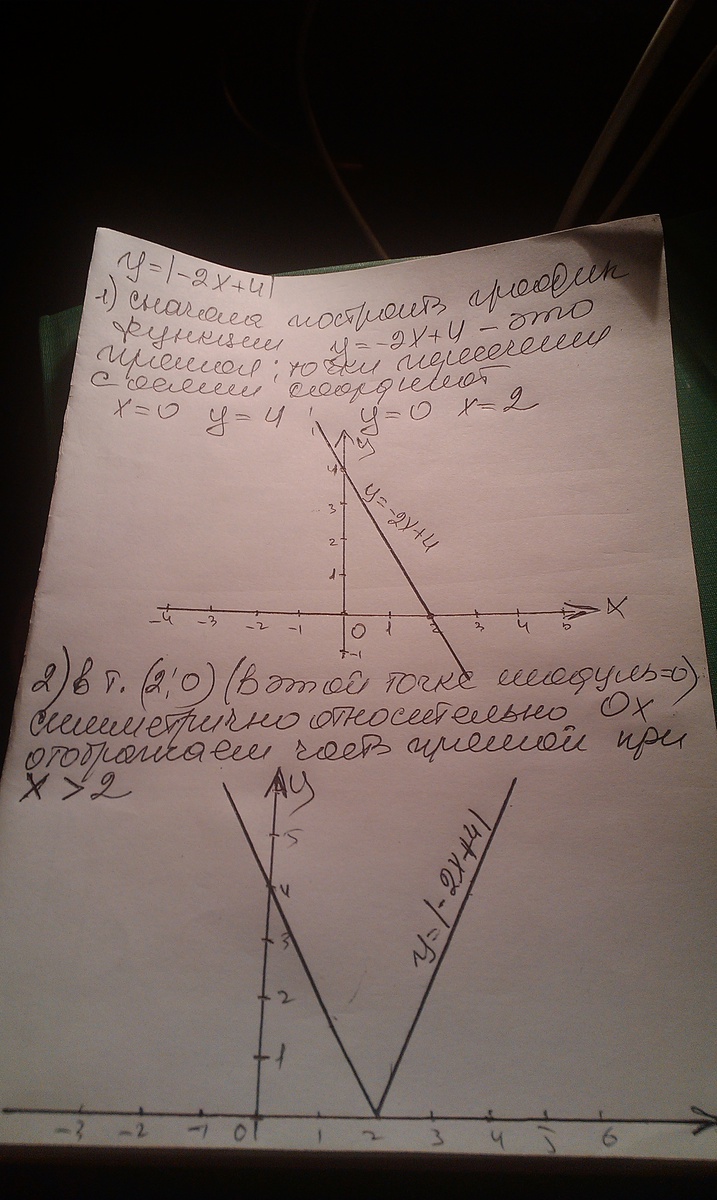 y=|-2x+4|
1) сначала построить график
функции y=-2x+4 - это
прямая; точки пересечения
с осями координат
x=0 y=4 ; y=0 x=2
y
4
y=-2x+4
3
2
1
-4 -3 -2 -1 0 1 2 3 4 5 X
-1
2) в т. (2;0) (в этой точке модуль=0)
симметрично относительно Ox
отображаем часть прямой при
x>2
y
5
4
y=|-2x+4|
3
2
1
-3 -2 -1 0 1 2 3 4 5 6